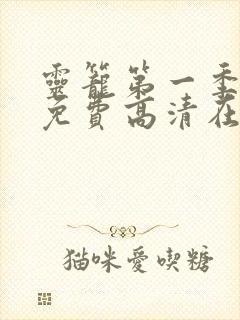 靈籠第一季
免費高清在
猫咪愛喫糖